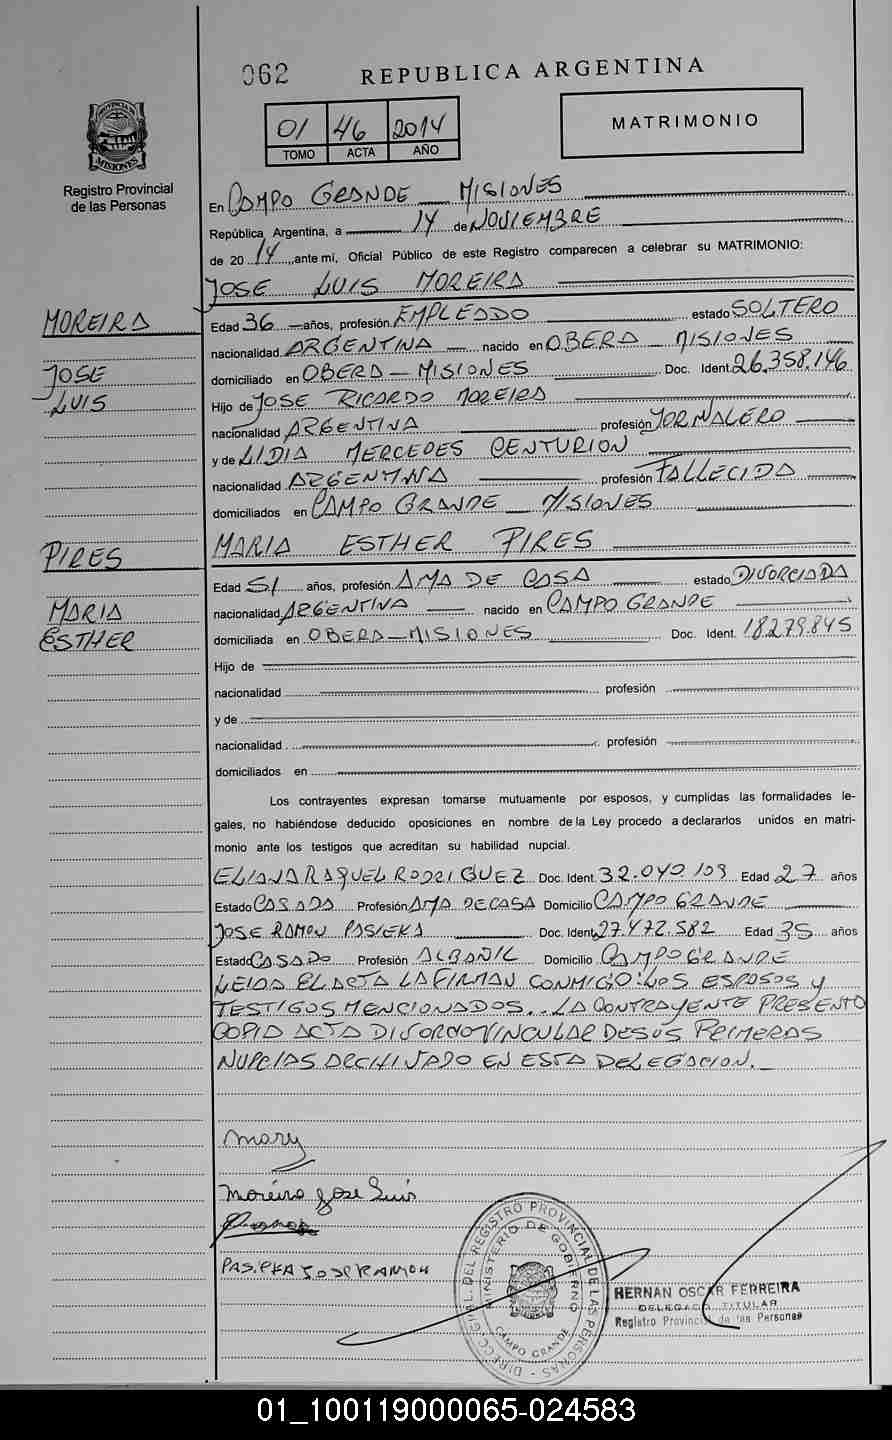 062
REPUBLICA ARGENTINA
PROVINCIA DE
MISIONES
Registro Provincial
de las Personas
01 46 2014
TOMO ACTA AÑO
MATRIMONIO
En CAMPO GRANDE MISIONES
República Argentina, a 14 de NOVIEMBRE
de 2014, ante mi, Oficial Público de este Registro comparecen a celebrar su MATRIMONIO:
JOSE LUIS MOREIRA
MOREIRA
JOSE
LUIS
Edad 36 años, profesión EMPLEADO estado SOLTERO
nacionalidad ARGENTINA nacido en OBERA - MISIONES
domiciliado en OBERA - MISIONES Doc. Ident. 26.358.146
Hijo de JOSE RICARDO MOREIRA
nacionalidad ARGENTINA profesión JORNALERO
y de LIDIA MERCEDES CENTURION
nacionalidad ARGENTINA profesión FALLECIDA
domiciliados en CAMPO GRANDE - MISIONES
MARIA ESTHER PIRES
PIRES
MARIA
ESTHER
Edad 51 años, profesión AMA DE CASA estado DIVORCIADA
nacionalidad ARGENTINA nacido en CAMPO GRANDE
domiciliada en OBERA - MISIONES Doc. Ident. 18.279.845
Hijo de
nacionalidad profesión
y de
nacionalidad profesión
domiciliados en
Los contrayentes expresan tomarse mutuamente por esposos, y cumplidas las formalidades le-
gales, no habiéndose deducido oposiciones en nombre de la Ley procedo a declararlos unidos en matri-
monio ante los testigos que acreditan su habilidad nupcial.
ELIANA RAQUEL RODRIGUEZ Doc. Ident. 32.040.109 Edad 27 años
Estado CASADA Profesión AMA DE CASA Domicilio CAMPO GRANDE
JOSE RAMON PASIEKA Doc. Ident. 27.472.582 Edad 35 años
Estado CASADO Profesión ALBAÑIL Domicilio CAMPO GRANDE
LEIDA EL ACTA LA FIRMAN CONMIGO: LOS ESPOSOS y
TESTIGOS MENCIONADOS.. LA CONTRAYENTE PRESENTO
COPIA ACTA DIVORCIO VINCULAR DE SUS PRIMERAS
NUPCIAS ARCHIVADO EN ESTA DELEGACION.
mary
Moreira Jose Luis
PASIEKA JOSE RAMON
DIRECC. GRAL. DEL REGISTRO PROVINCIAL DE LAS PERSONAS
MINISTERIO DE GOBIERNO
CAMPO GRANDE
HERNAN OSCAR FERREIRA
DELEGADO TITULAR
Registro Provincial de las Personas
01_100119000065-024583